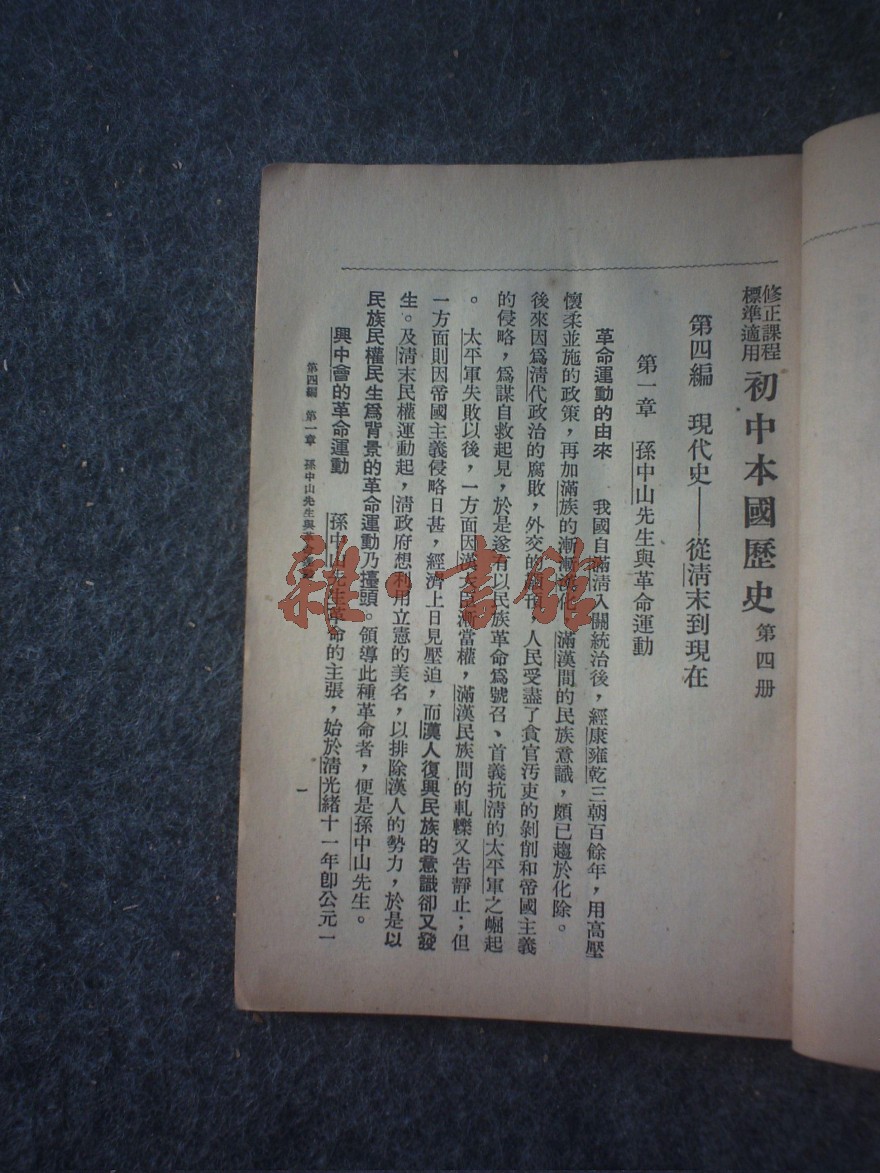 修正課程
標準適用
初中本國歷史 第四册
第四編 現代史——從清末到現在
第一章 孫中山先生與革命運動
革命運動的由來 我國自滿清入關統治後，經康雍乾三朝百餘年，用高壓
懷柔並施的政策，再加滿族的漸漸漢化，滿漢間的民族意識，頗已趨於化除。
後來因爲清代政治的腐敗，外交的　　人民受盡了貪官汚吏的剝削和帝國主義
的侵略，爲謀自救起見，於是遂有以民族革命爲號召、首義抗清的太平軍之崛起
。太平軍失敗以後，一方面因漢人　漸當權，滿漢民族間的軋轢又告靜止；但
一方面則因帝國主義侵略日甚，經濟上日見壓迫，而漢人復興民族的意識卻又發
生。及清末民權運動起，清政府想利用立憲的美名，以排除漢人的勢力，於是以
民族民權民生爲背景的革命運動乃擡頭。領導此種革命者，便是孫中山先生。
興中會的革命運動 孫中山先生革命的主張，始於清光緒十一年卽公元一
第四編 第一章 孫中山先生與
一
雜·書館